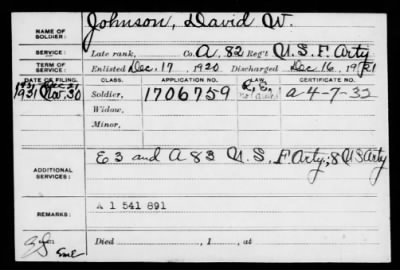 NAME OF SOLDIER: Johnson, David W.
SERVICE: Late rank, Co. A, 82 Reg't U.S. F. Arty
TERM OF SERVICE: Enlisted Dec. 17, 1920 Discharged Dec. 16, 1921
DATE OF FILING. CLASS. APPLICATION NO. LAW. CERTIFICATE NO.
1931 Mar. 30 Soldier, 1706759 R.E. a-4-7-32
Widow,
Minor,
ADDITIONAL SERVICES: E 3 and A 83 U.S. F Arty; 8 US Arty
REMARKS: A 1 541 891
Died , 1 , at